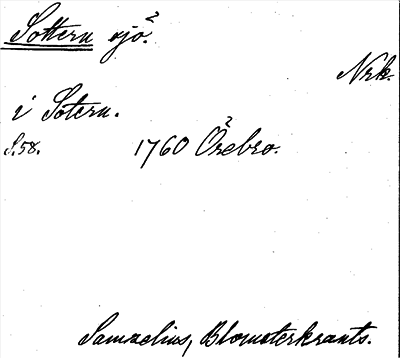 Sottern sjö.
Nrk.
i Sotern.
S. 58. 1760 Örebro.
Samzelius, Blomsterkrants.